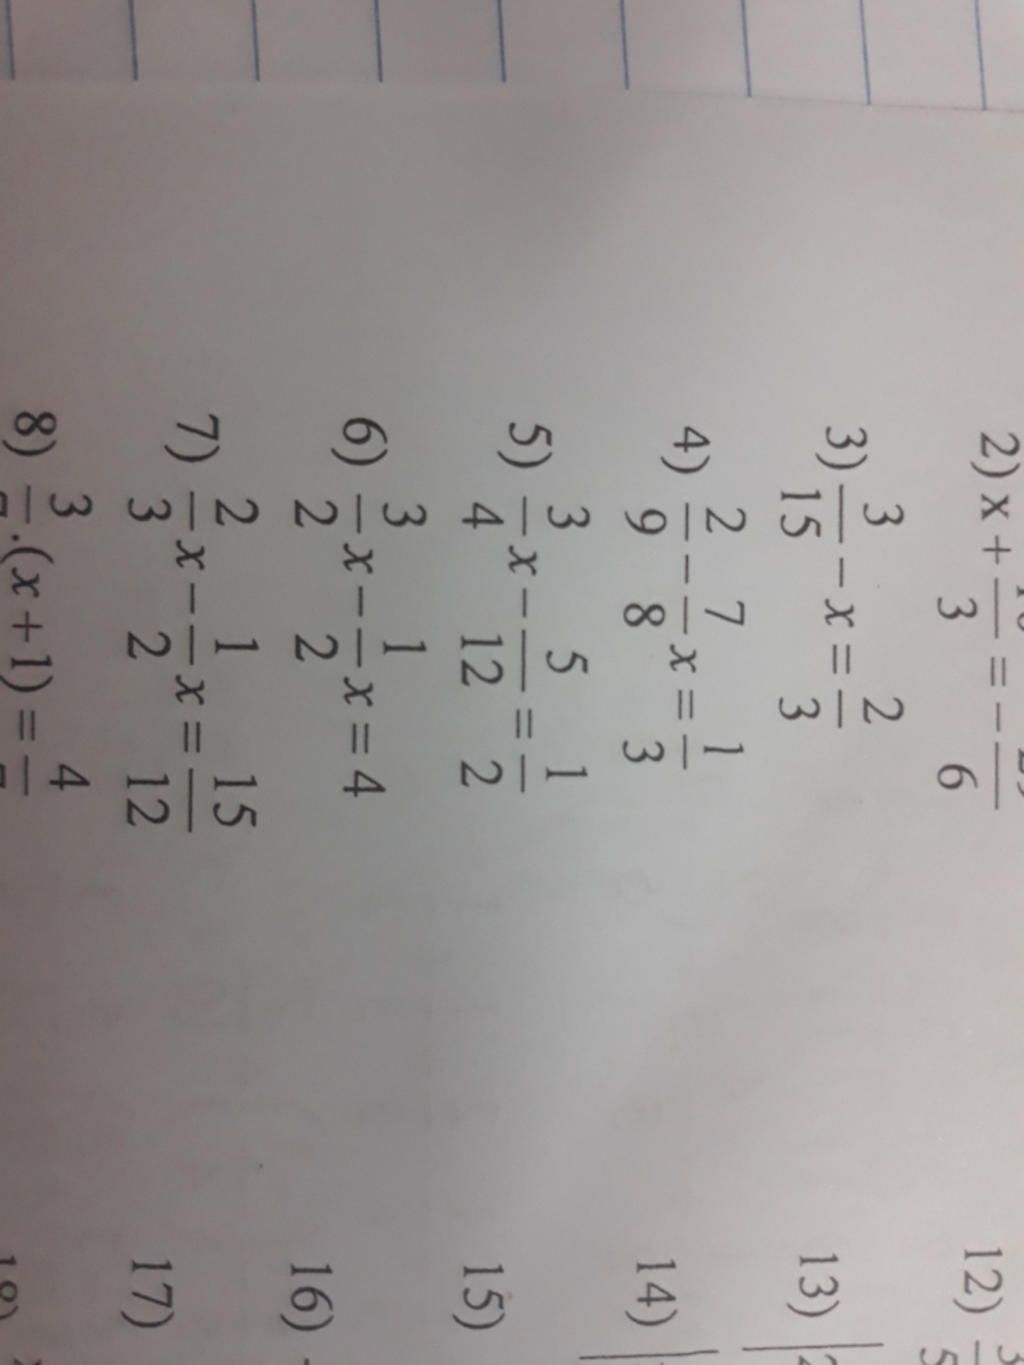 2) x + /3 = - /6
3) 3/15 - x = 2/3
4) 2/9 - 7/8 x = 1/3
5) 3/4 x - 5/12 = 1/2
6) 3/2 x - 1/2 x = 4
7) 2/3 x - 1/2 x = 15/12
8) 3/ .(x+1) = 4/
12) 3/5
13)
14)
15)
16)
17)